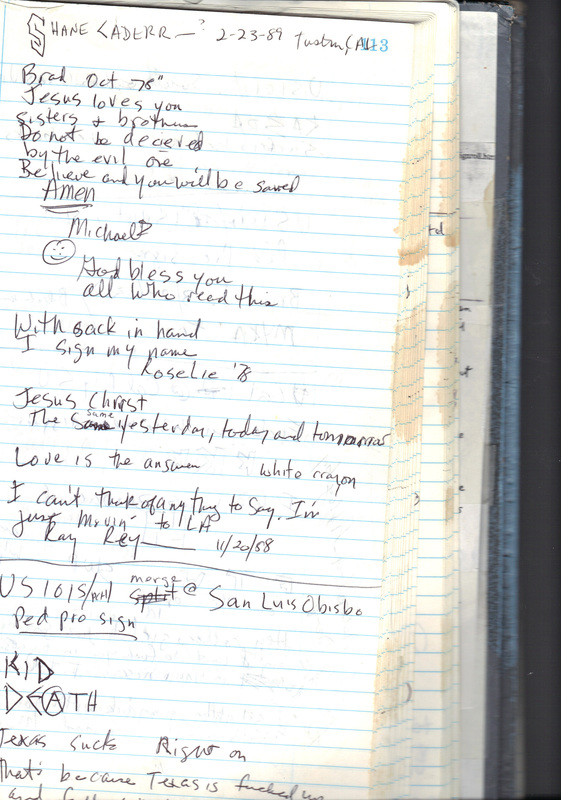 SHANE CADERR —? 2-23-89 Tustin, CAL 113
Brad Oct 78"
Jesus loves you
sisters & brothers
Do not be decieved
by the evil one
Believe and you will be saved
Amen
Michael
God bless you
all who read this
With sack in hand
I sign my name
Roselie '78
Jesus Christ
The same yesterday, today and tomorrow
Love is the answer white crayon
I can't think of any thing to say. I'm
just movin' to LA
Ray Rey 11/20/88
US 101 S/ merge split @ San Luis Obisbo
Ped pro sign
KID
DEATH
Texas sucks Right on
That's because Texas is fucked up
and